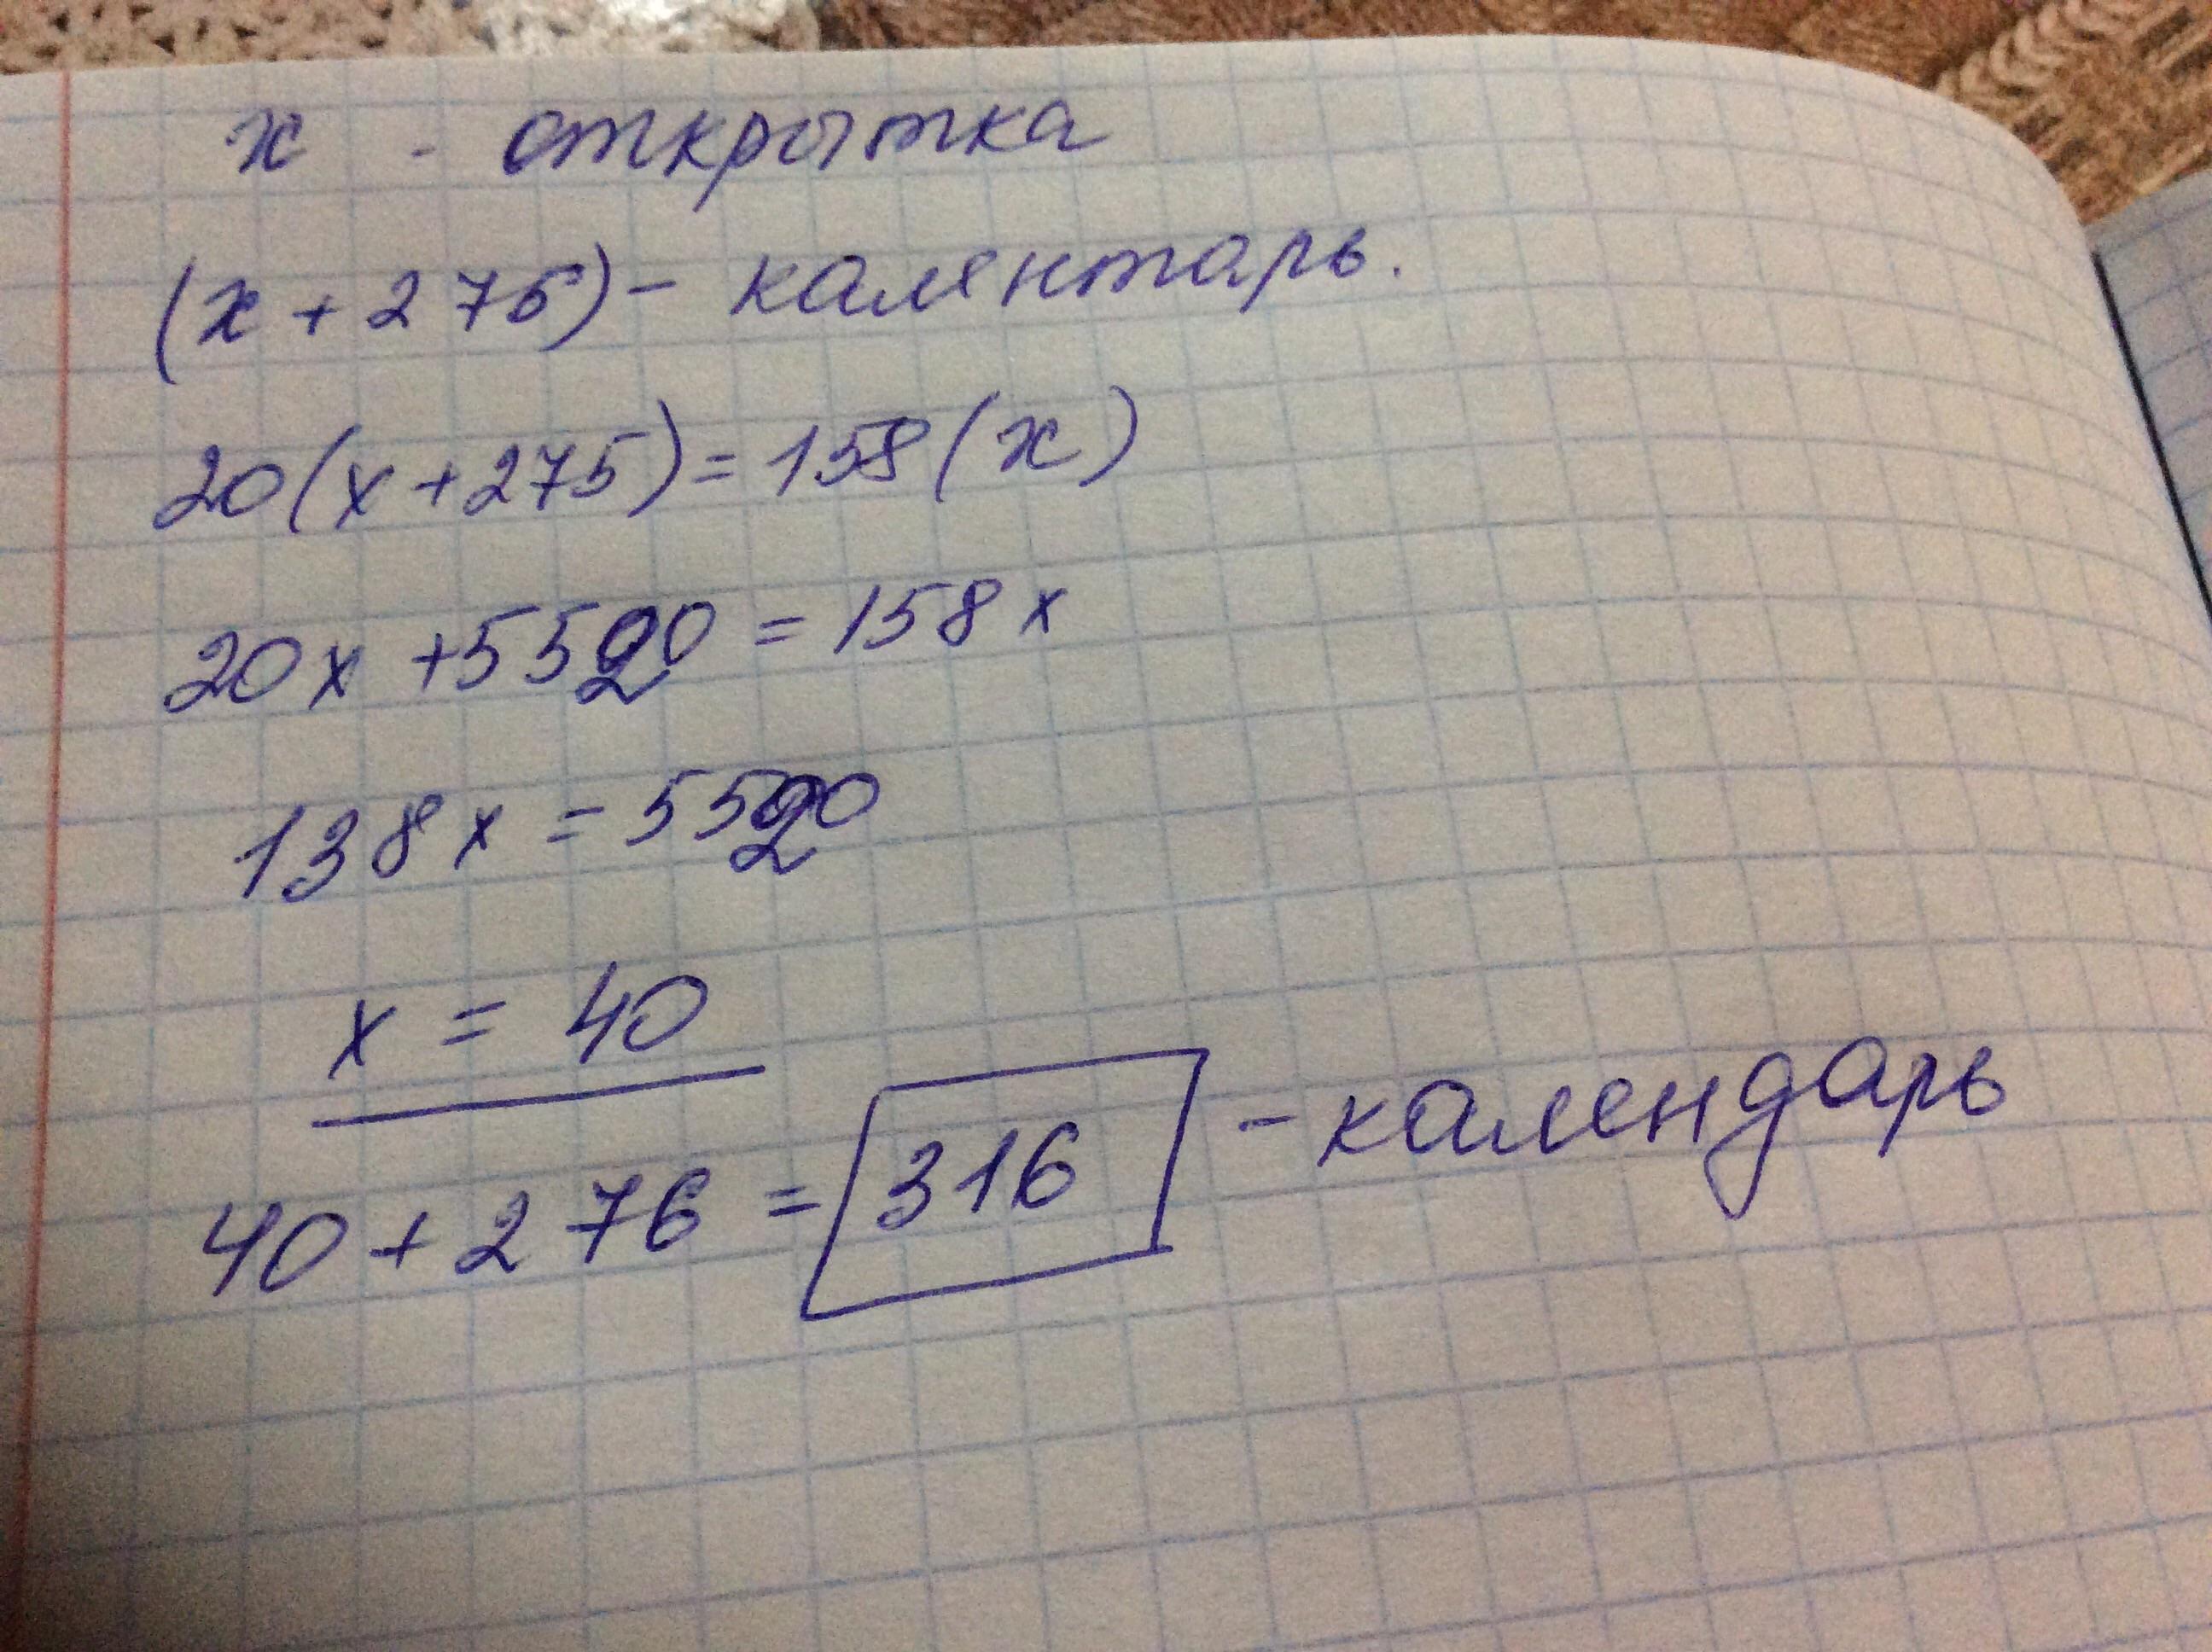 x - открытка
(x + 276) - калентарь.
20(x + 275) = 158(x)
20x + 5520 = 158x
138x = 5520
x = 40
40 + 276 = 316 - календарь